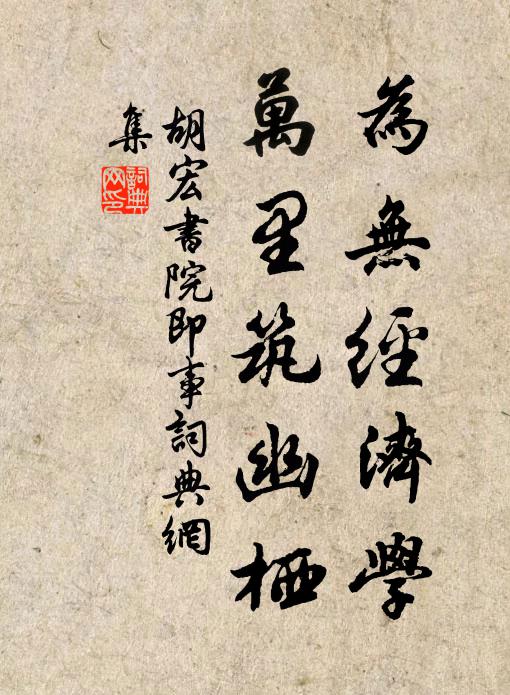 為無經濟學
萬里筑幽栖
胡宏書院即事詞典網
集
詞典
网印